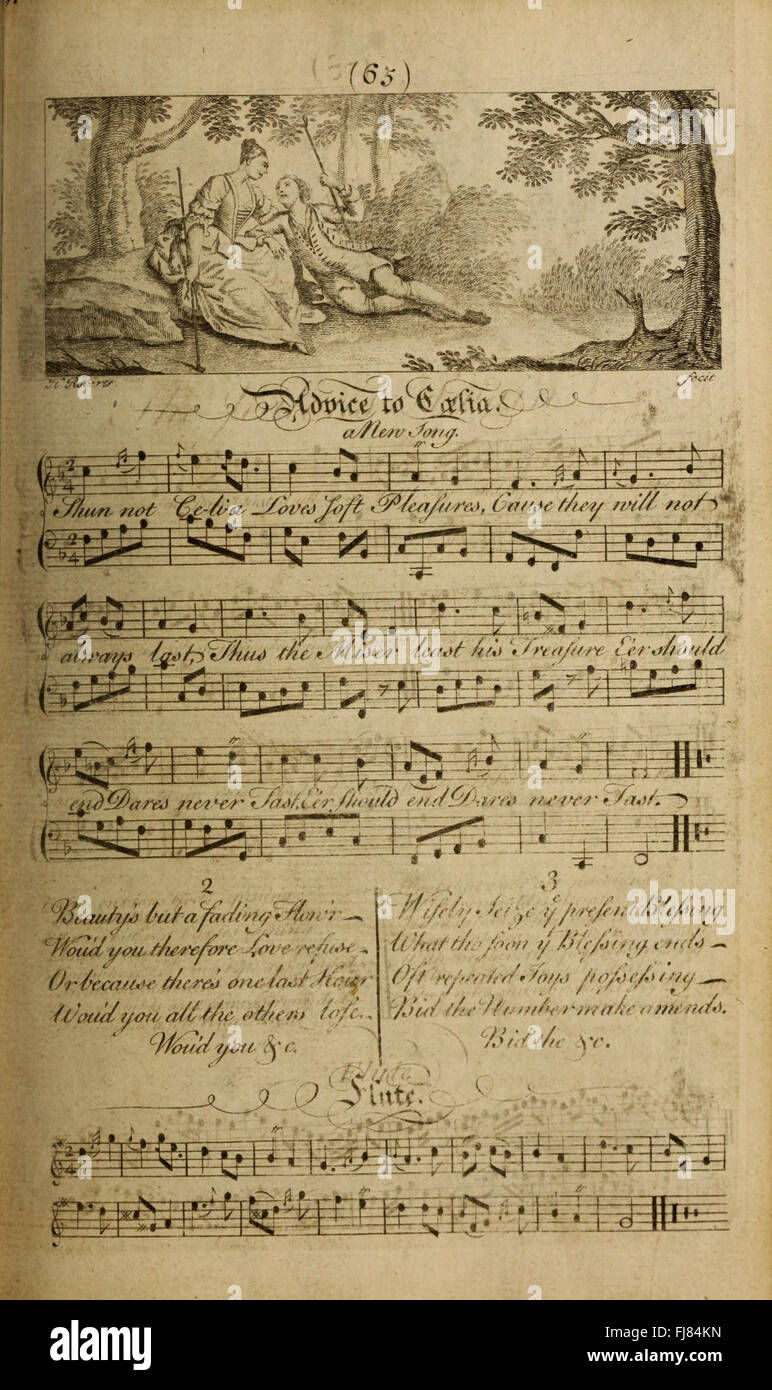 (65)
H Roberts fecit
Advice to Cælia.
a New Song.
Shun not Ce-lia Loves soft Pleasures, Cause they will not
always last, Thus the Miser least his Treasure E'er should
end Dares never Tast, E'er should end Dares never Tast.
2
Beauty's but a fading Flow'r
Wou'd you therefore Love refuse
Or because there's one last Hour
Wou'd you all the others lose
Wou'd you &c.
3
Wisely Seize yͤ present Blessing
What tho soon yͤ Blessing ends
Oft repeated Joys possessing
Bid the Number make amends.
Bid the &c.
Flute.
alamy
alamy stock photo
FJ84KN
www.alamy.com